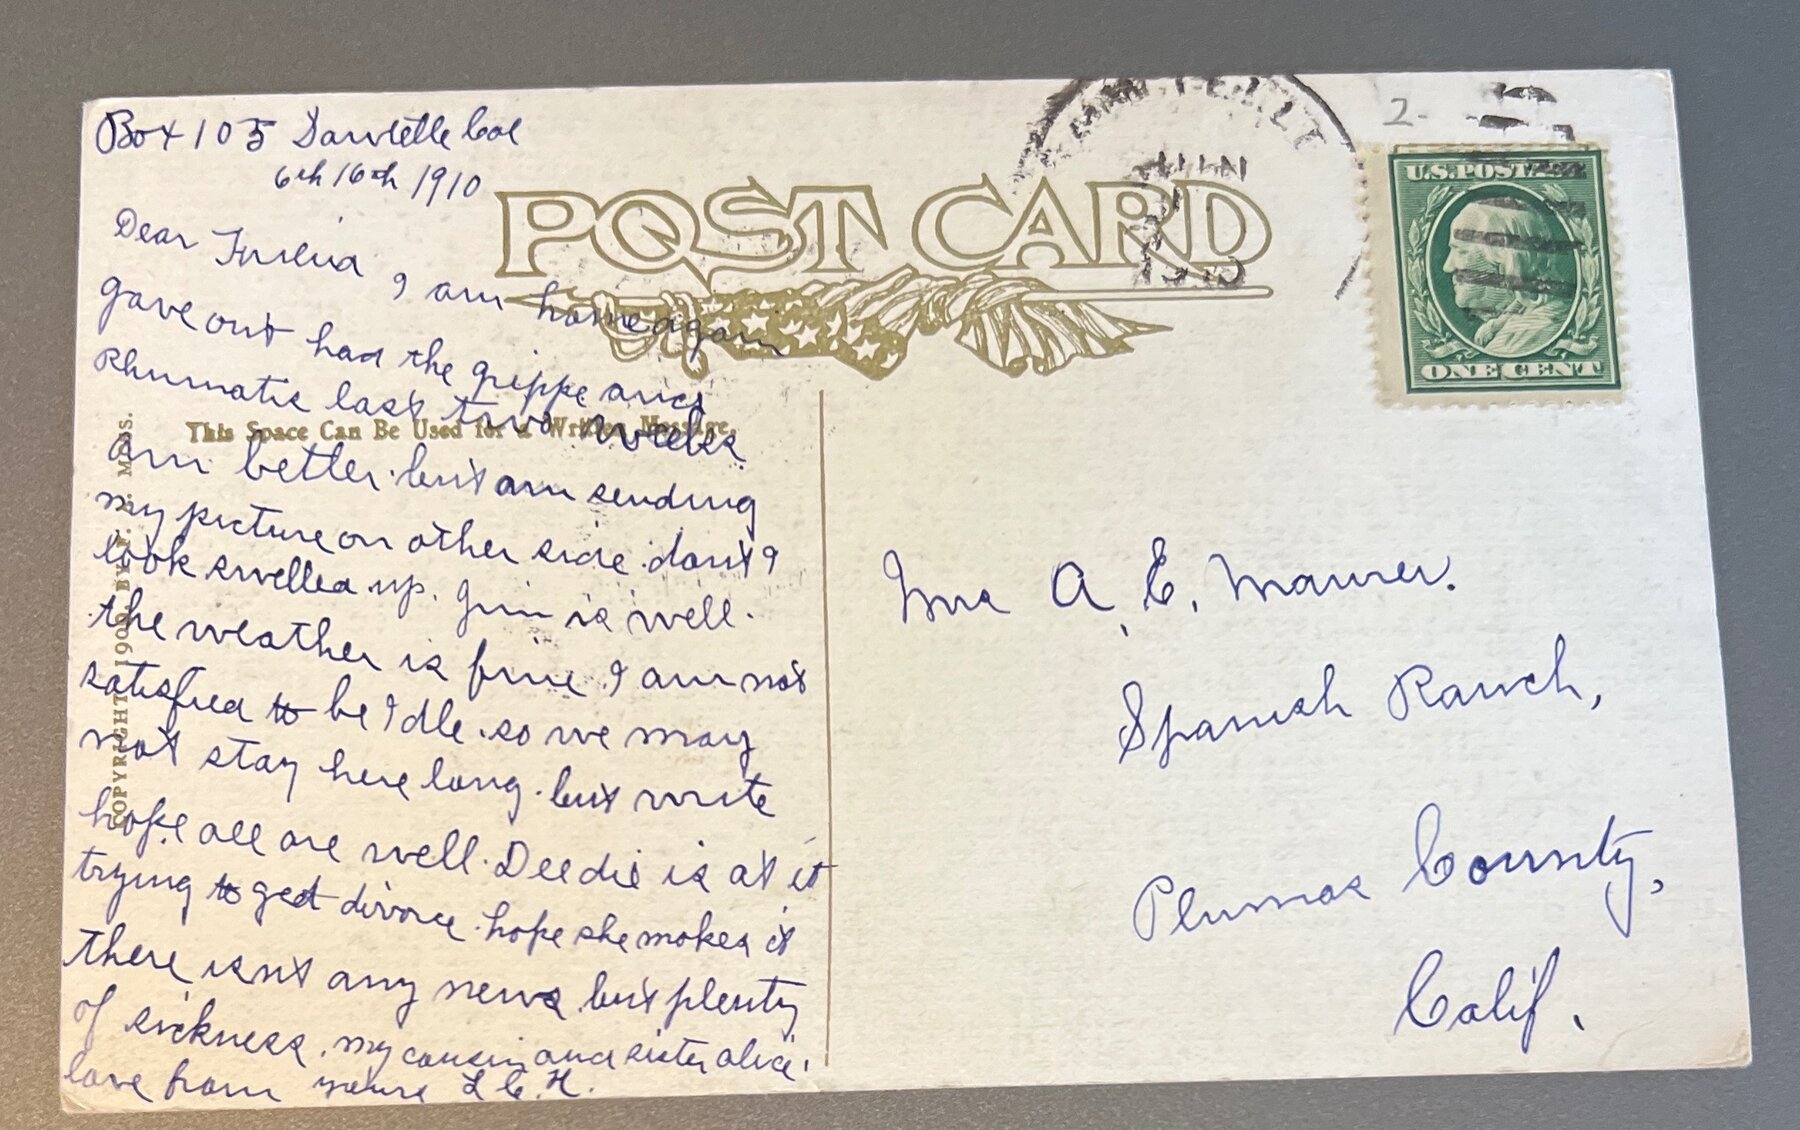 Box 105 Col
6th 16th 1910
POST CARD
JUN
U.S. POST
ONE CENT
2
Dear I am home again
gave out had the grippe and
Rhumatis last two weeks
This Space Can Be Used for a Written Message.
am better. but am sending
my picture on other side. don't I
look swelled up. Jim is well.
the weather is fine I am not
satisfied to be Idle. so we may
not stay here long. but write
hope all are well. Deedie is at it
trying to get divorce. hope she makes it
there isn't any news but plenty
of sickness. my cousin and sister alice.
love from yours L C. H.
COPYRIGHT 1909, BY
Mrs A. E. Maurer.
Spanish Ranch,
Plumas County,
Calif.